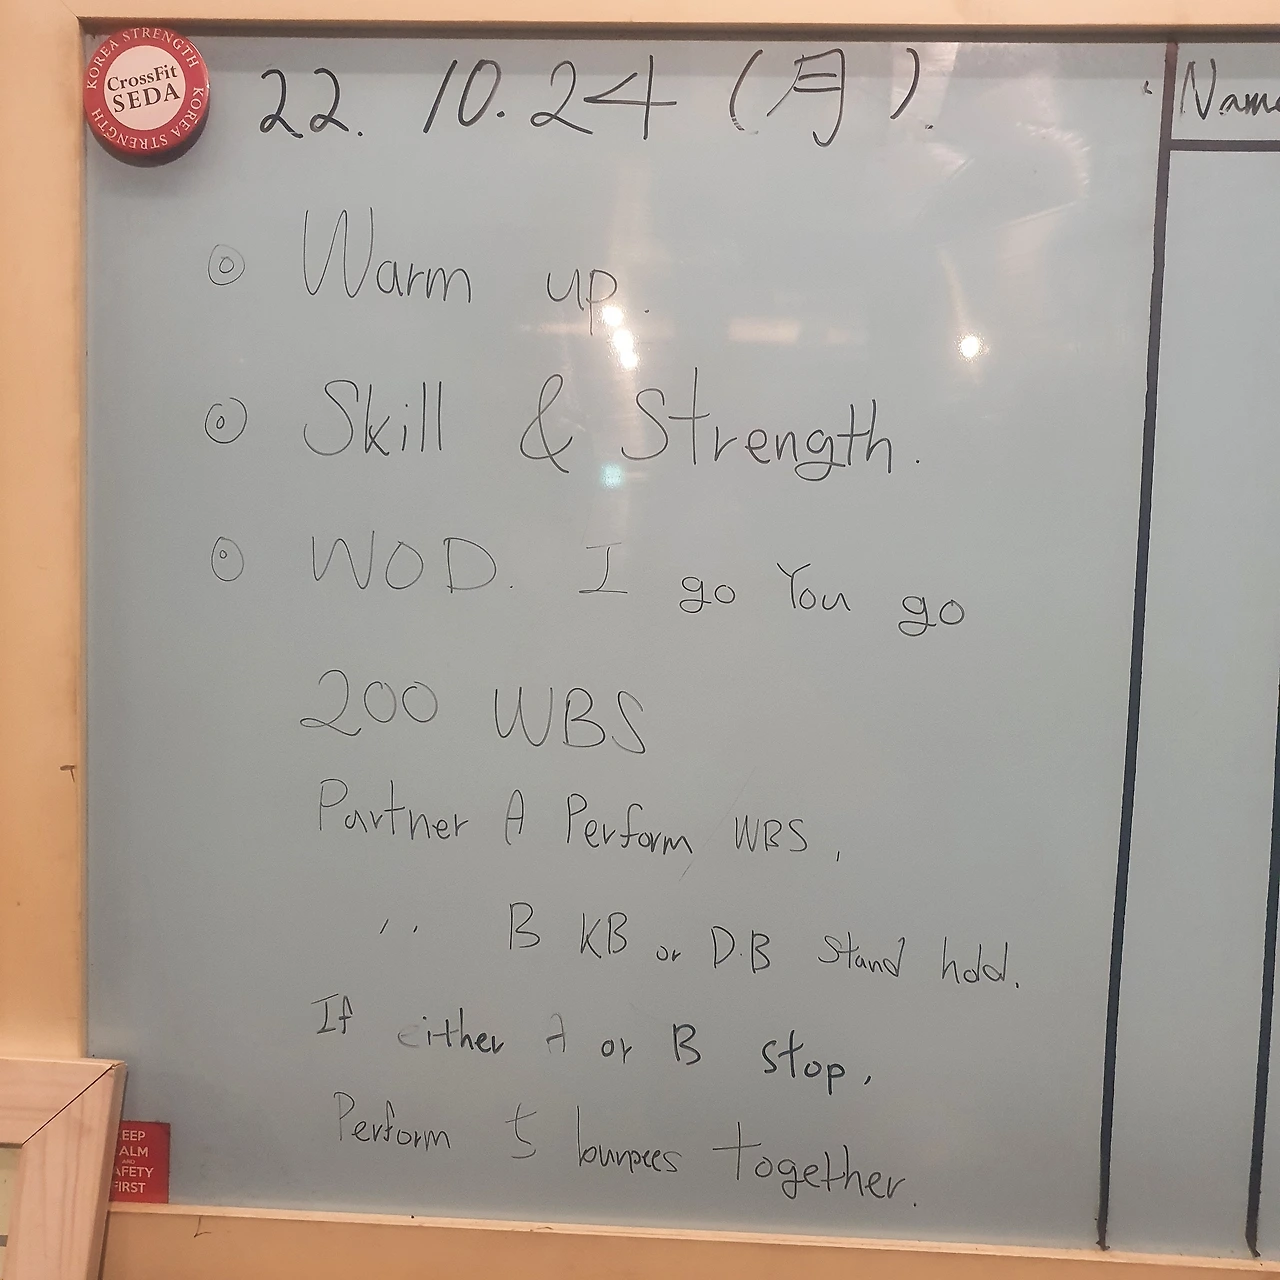 KOREA STRENGTH
CrossFit
SEDA
KOREA STRENGTH
22. 10. 24 (月).
Name
◎ Warm up.
◎ Skill & Strength.
◎ WOD. I go You go
200 WBS
Partner A Perform WBS,
〃 B KB or D.B stand hold.
If either A or B stop,
Perform 5 burpees together.
EEP
ALM
AND
AFETY
FIRST